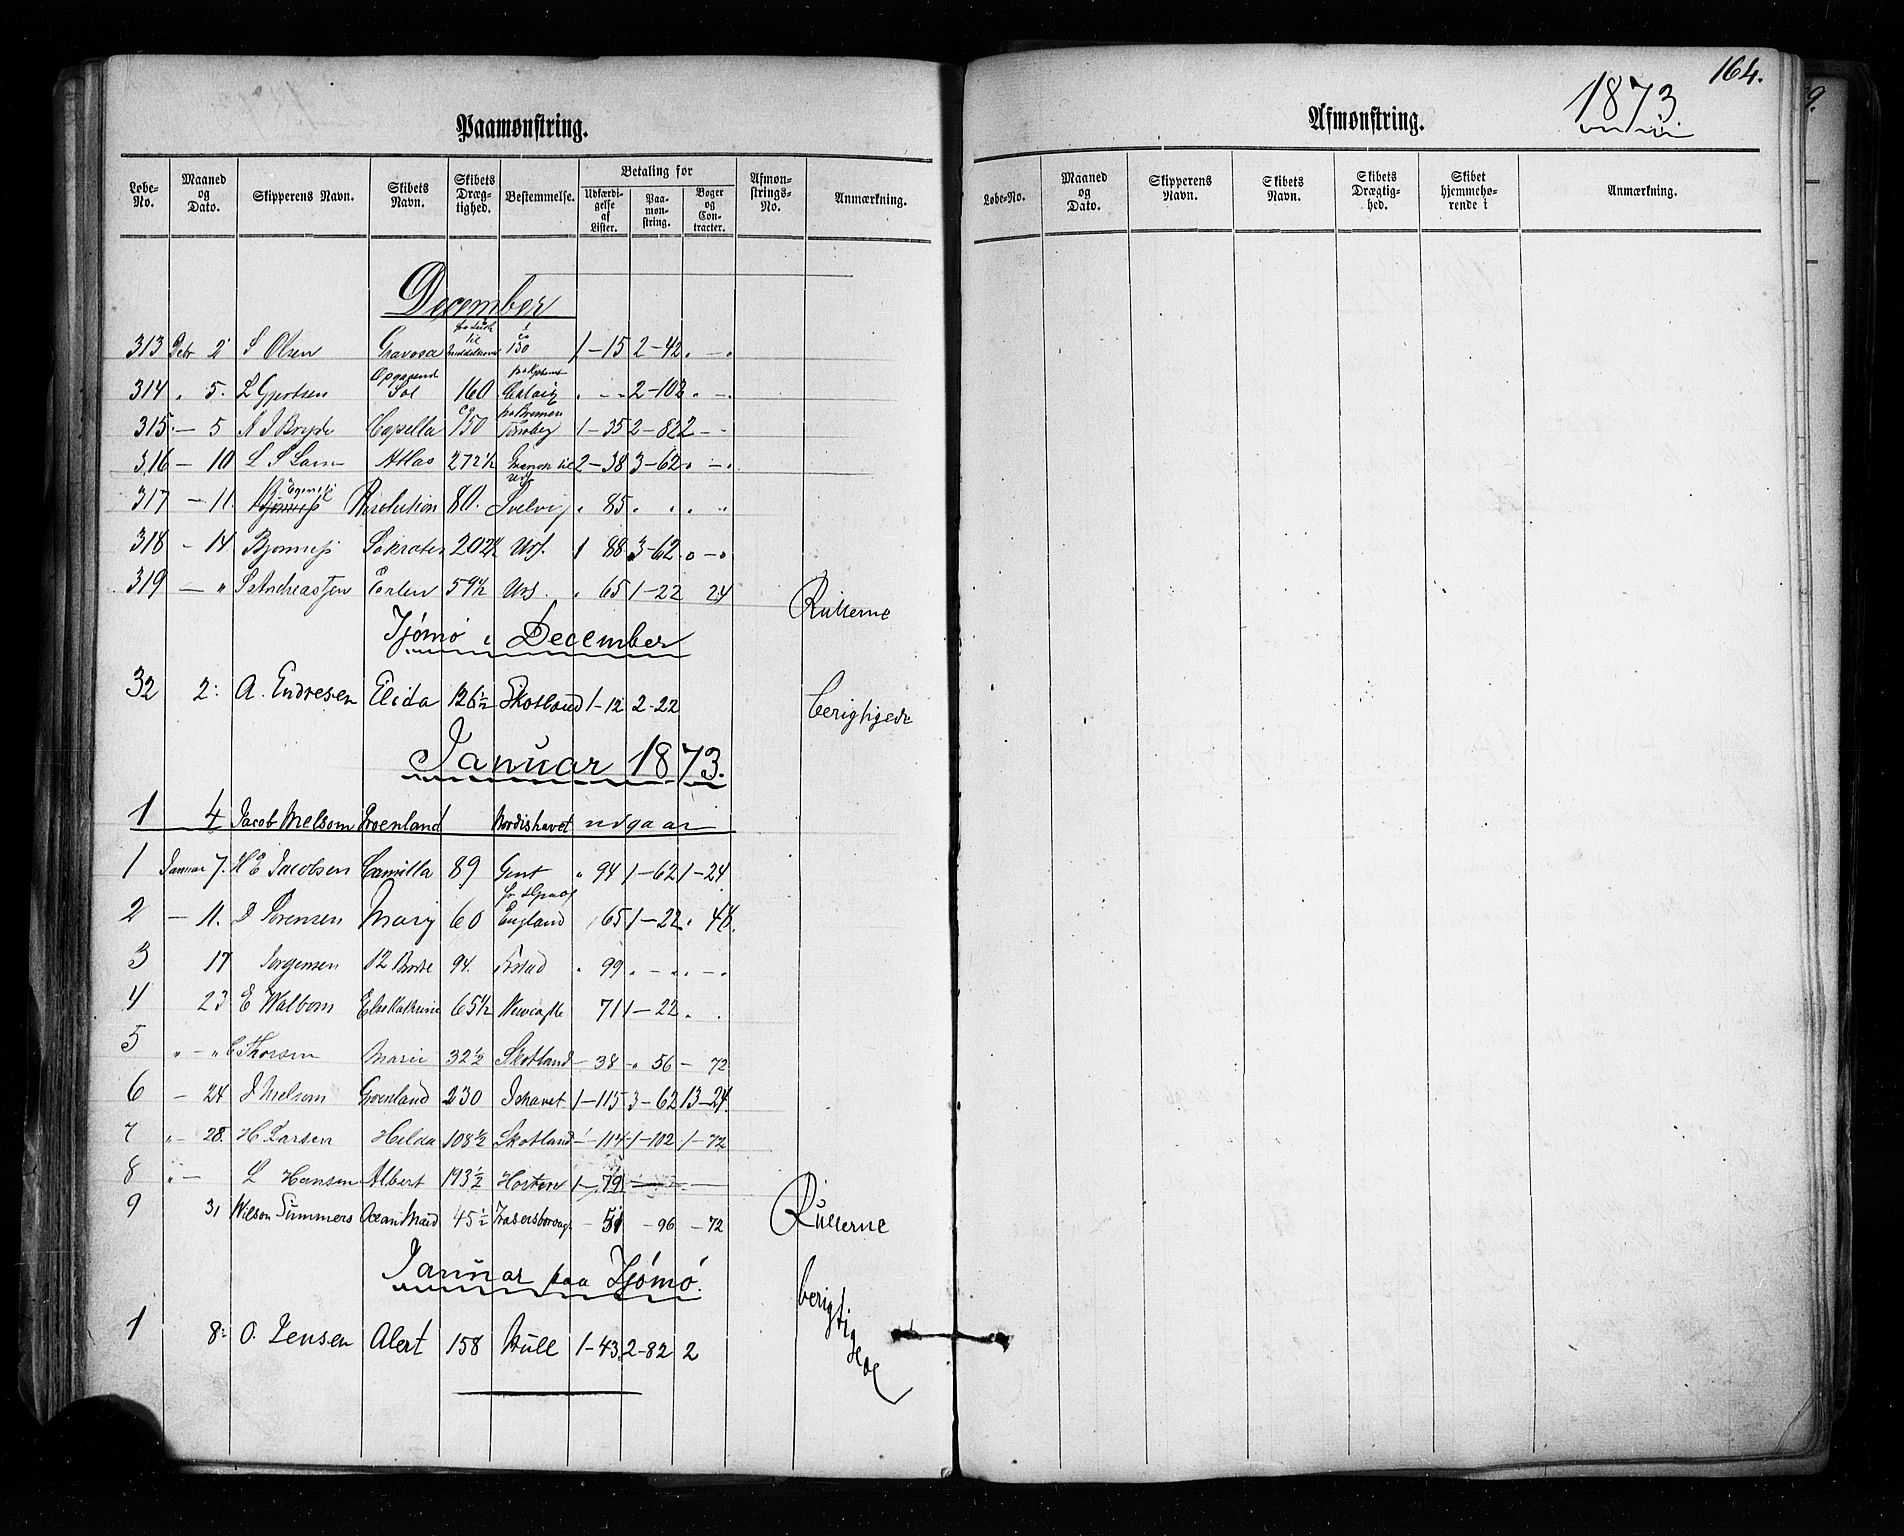 Paamønstring.
Løbe-No. | Maaned og Dato. | Skipperens Navn. | Skibets Navn. | Skibets Dræg-tighed. | Bestemmelse. | Betaling for Udfærdi-gelse af Lister. | Paa-møn-string. | Bøger og Con-tracter. | Afmøn-strings-No. | Anmærkning.
December
313 2 S Olsen Gravosa 150 1-15 2-42
314 " 5. L Gjertsen Sol 160 2-102
315 - 5 Bryde Capella 150 1-35 2-82 2
316 - 10 L S Larn Atlas 272½ 2-38 3-62
317 - 11. Resolution 80. Svelvig " 85
318 - 14 Bjønness Sokrates 202½ Urs. 1 88 3-62
319 - " S Andreassen 59½ Urs. " 65 1-22 24 Rullerne
Tjømø i December
32 2: A. Endresen Elida 126½ Skotland 1-12 2-22 berigtigede
Januar 1873.
1 4 Jacob Melsom Groenland Nordishavet udgaar
1 Januar 7. H E Jacobsen Camilla 89 Gent " 94 1-62 1-24
2 - 11. Sørensen Mary 60 England 65 1-22 48.
3 17 Jørgensen 94. " 99
4 23 E Walbom Else Kathrine 65½ Newcastle 71 1-22
5 " - " Thorsen Marie 32½ Skotland - 38 " 56 - 72
6 - 24 J Melsom Groenland 230 Ishavet 1-115 3-62 13-24
7 " 28. H Larsen Hilda 108½ Skotland - 114 1-102 1-72
8 " - L Hansen Albert 193½ Horten 1-79
9 31 Wilson Summers Ocean Maid 45½ Frasersborough - 51 - 96 - 72 Rullerne
Januar paa Tjømø.
1 8: O. Jensen Alert 158 Hull 1-43 2-82 2 berigtigede
164.
Afmønstring. 1873
Løbe-No. | Maaned og Dato. | Skipperens Navn. | Skibets Navn. | Skibets Drægtig-hed. | Skibet hjemmehø-rende i | Anmærkning.